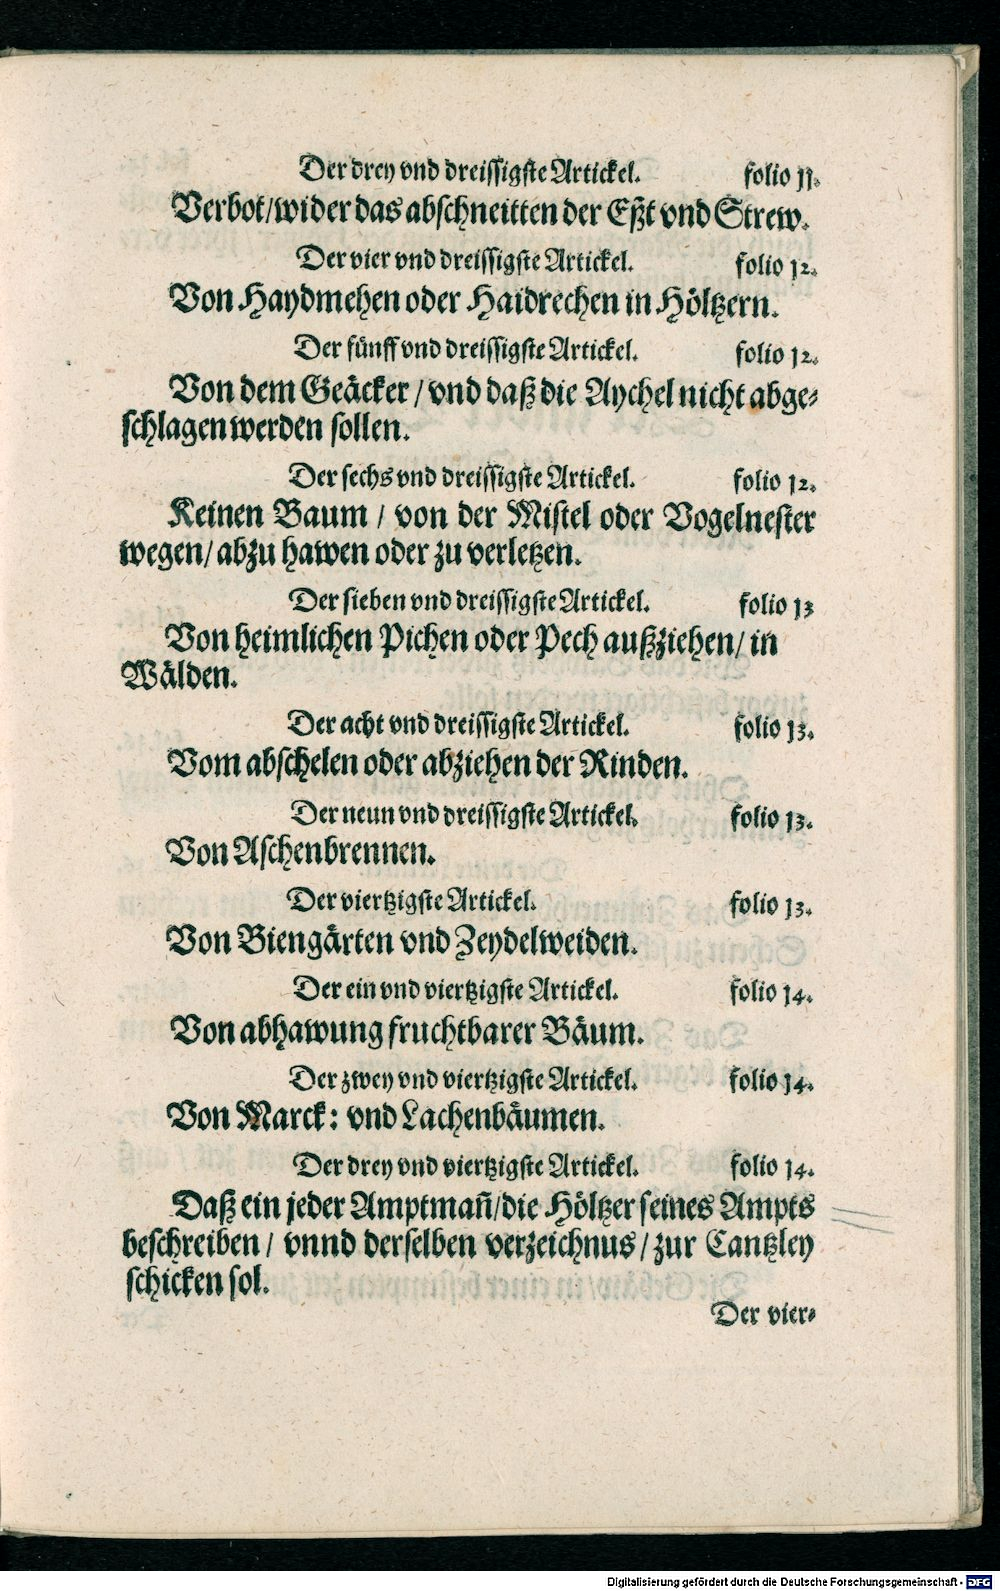 Der drey vnd dreissigste Artickel. folio 11.
Verbot/wider das abschneitten der Eßt vnd Strew.
Der vier vnd dreissigste Artickel. folio 12.
Von Haydmehen oder Haidrechen in Höltzern.
Der fünff vnd dreissigste Artickel. folio 12.
Von dem Geäcker / vnd daß die Aychel nicht abge-
schlagen werden sollen.
Der sechs vnd dreissigste Artickel. folio 12.
Keinen Baum / von der Mistel oder Vogelnester
wegen/ abzu hawen oder zu verletzen.
Der sieben vnd dreissigste Artickel. folio 13
Von heimlichen Pichen oder Pech außziehen/ in
Wälden.
Der acht vnd dreissigste Artickel. folio 13.
Vom abschelen oder abziehen der Rinden.
Der neun vnd dreissigste Artickel. folio 13.
Von Aschenbrennen.
Der viertzigste Artickel. folio 13.
Von Biengärten vnd Zeydelweiden.
Der ein vnd viertzigste Artickel. folio 14.
Von abhawung fruchtbarer Bäum.
Der zwey vnd viertzigste Artickel. folio 14.
Von Marck: vnd Lachenbäumen.
Der drey vnd viertzigste Artickel. folio 14.
Daß ein jeder Amptmañ/die Höltzer seines Ampts
beschreiben / vnnd derselben verzeichnus / zur Cantzley
schicken sol.
Der vier-
Digitalisierung gefördert durch die Deutsche Forschungsgemeinschaft - DFG